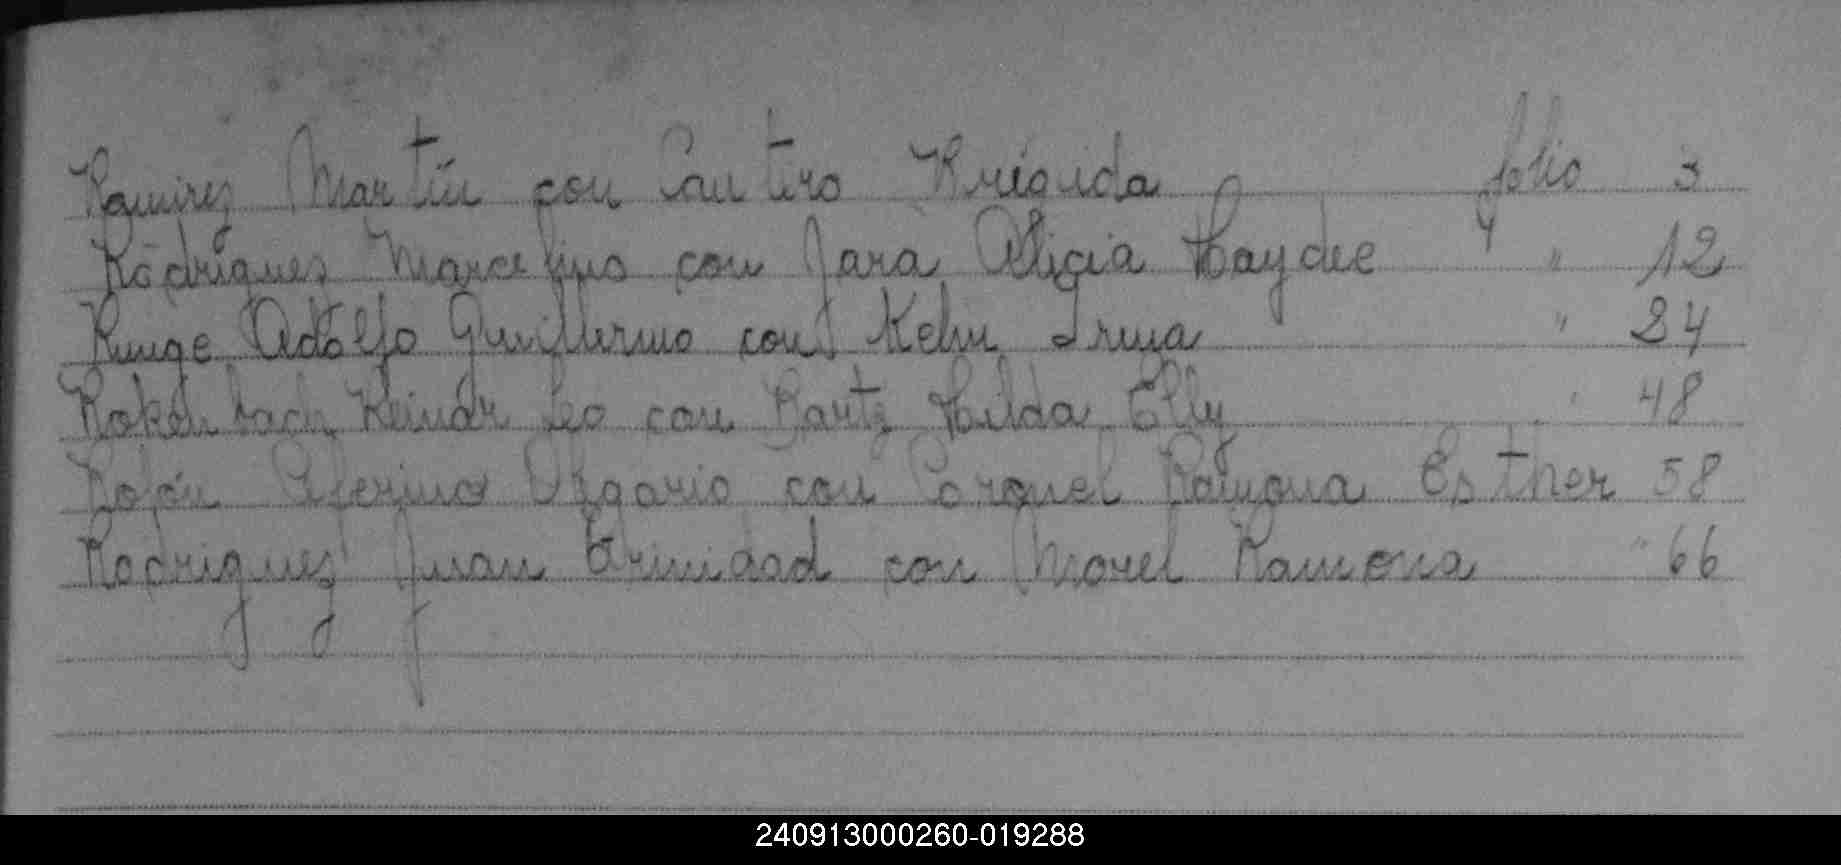 Ramirez Martin con Cantero Brigida folio 3
Rodriguez Marcelino con Jara Aligia Haydee " 12
Runge Adolfo Guillermo con Kehn Irma " 24
Rokenbach Reinar Leo con Bartz Hilda Elly " 48
Rolon Ceferino Olgario con Coronel Ramona Esther 58
Rodriguez Juan trinidad con Morel Ramona " 66
240913000260-019288